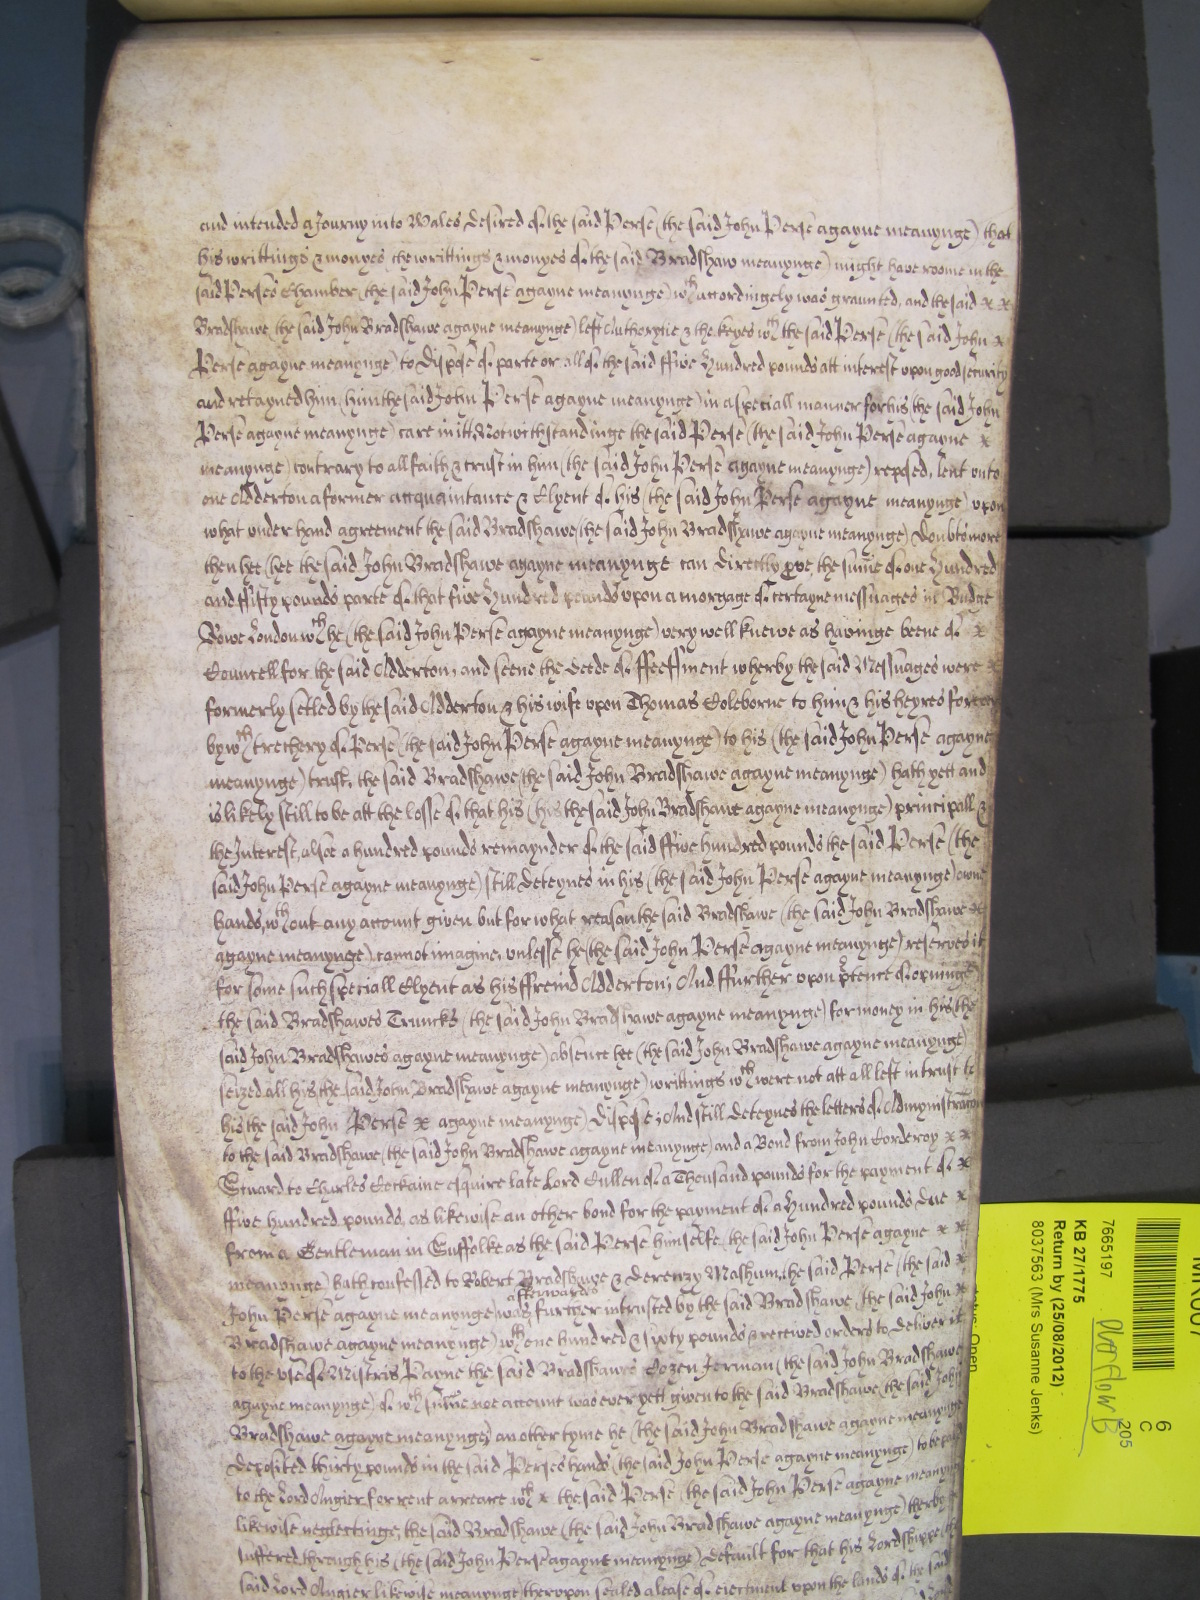 and intended a Journy into Wales desired of the said Perse (the said John Perse agayne meanynge) that
his writtings & monyes (the writtings & monyes of the said Bradshaw meanynge) might have roome in the
said Perses Chamber (the said John Perse agayne meanynge) wth accordingely was graunted, and the said x x
Bradshawe (the said John Bradshawe agayne meanynge) left Authorytie & the keyes wth the said Perse (the said John x
Perse agayne meanynge) to dispose of parte or all of the said ffive hundred pounds att interest upon good security
and retayned him (him the said John Perse agayne meanynge) in a speciall manner for his (the said John
Perse agayne meanynge) care in itt, Notwithstandinge the said Perse (the said John Perse agayne x
meanynge) contrary to all faith & trust in him (the said John Perse agayne meanynge) reposed, lent unto
one Adderton a former acquaintance & Clyent of his (the said John Perse agayne meanynge) upon
what under hand agreement the said Bradshawe (the said John Bradshawe agayne meanynge) doubts more
then hee (hee the said John Bradshawe agayne meanynge can directly prove the sume of one hundred
and ffifty pounds parte of that five hundred pounds upon a morgage of certayne messuages in Budge
Rowe London wth he (the said John Perse agayne meanynge) very well knewe as havinge beene of x
Councell for the said Adderton, and seene the deede of ffeeffment wherby the said Messuages were x
formerly setled by the said Adderton & his wife upon Thomas Coleborne to him & his heyres for ever
by wth trechery of Perse (the said John Perse agayne meanynge) to his (the said John Perse agayne
meanynge) trust, the said Bradshawe (the said John Bradshawe agayne meanynge) hath yett and
is likely still to be att the losse of that his (his the said John Bradshawe agayne meanynge) principall &
the Interest, alsoe a hundred pounds remaynder of the said ffive hundred pounds the said Perse (the
said John Perse agayne meanynge) still deteynes in his (the said John Perse agayne meanynge) owne
hands, wthout any account given but for what reason the said Bradshawe (the said John Bradshawe x
agayne meanynge) cannot imagine, unlesse he (the said John Perse agayne meanynge) reserves it
for some such speciall Clyent as his ffreind Adderton; And ffurther upon ptence of openinge
the said Bradshawes Truncks (the said John Bradshawe agayne meanynge) for money in his (the
said John Bradshawes agayne meanynge) absence hee (the said John Bradshawe agayne meanynge)
seized all his (the said John Bradshawe agayne meanynge) writtings wth were not att all left in trust to
his (the said John Perse x agayne meanynge) dispose; And still deteynes the letters of Admynistracon
to the said Bradshawe (the said John Bradshawe agayne meanynge) and a Bond from John Corderoy x x
to Charles Cockaine esquire late Lord Cullen of a Thousand pounds for the payment of x
ffive hundred pounds, as likewise an other bond for the payment of a hundred pounds due x
from a Gentleman in Suffolke as the said Perse himselfe (the said John Perse agayne x x
meanynge) hath confessed to Robert Bradshawe & Derenzy Mashum, the said Perse (the said x
John Perse agayne meanynge) was afterwards further intrusted by the said Bradshawe (the said John x
Bradshawe agayne meanynge) wth one hundred & sixty pounds & received orders to deliver it
to the use of Mistris Payne the said Bradshawes Cozen Jerman (the said John Bradshawe
agayne meanynge) of wth sume noe account was ever yett given to the said Bradshawe (the said John
Bradshawe agayne meanynge) an other tyme he (the said John Bradshawe agayne meanynge
deposited thirty pounds in the said Perses hands (the said John Perse agayne meanynge) to be paid
to the Lord Angier for rent arreare wth x the said Perse (the said John Perse agayne meanynge
likewise neglectinge, the said Bradshawe (the said John Bradshawe agayne meanynge) therby
suffered through his (the said John Perse agayne meanynge) default for that his Lordshippe (the
said Lord Angier likewise meanynge) therupon sealed a lease of ejectment upon the lands of the said
7665197
KB 27/1775
Return by (25/08/2012)
8037563 (Mrs Susanne Jenks)
6
C
205
Open